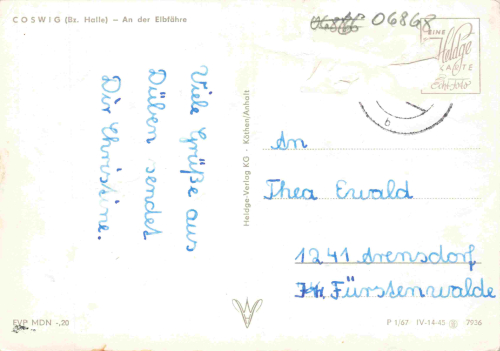 COSWIG (Bz. Halle) — An der Elbfähre
06868
EINE
Heldge
KARTE
Echt-Foto
Viele Grüße aus
Düben sendet
Dir Christine.
Heldge-Verlag KG · Köthen/Anhalt
An
Thea Ewald
1241 Arensdorf
Fürstenwalde
EVP MDN -,20
P 1/67 IV-14-45 7936